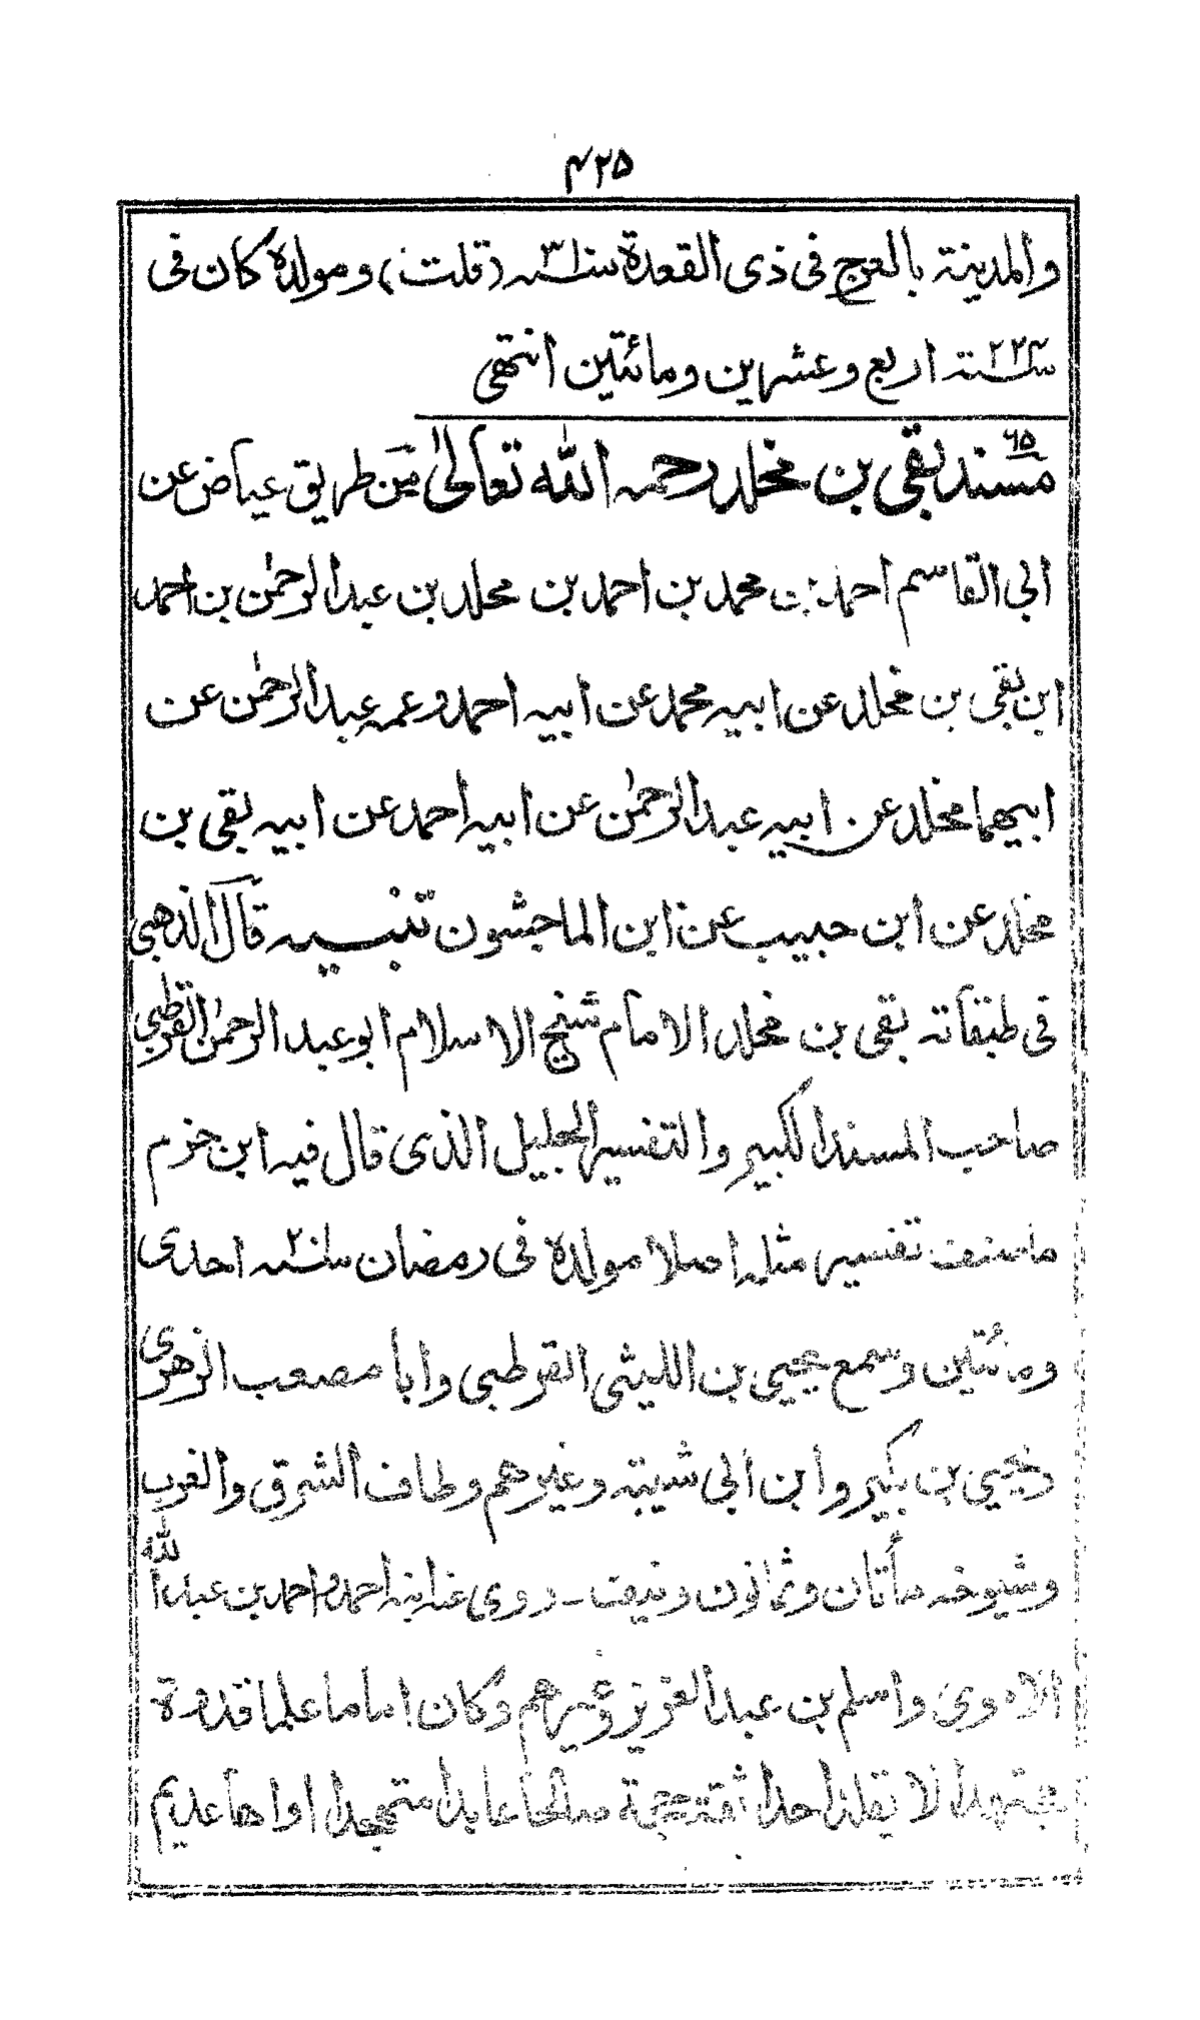 ۴۲۵
والمدينة بالعرج فى ذى القعدة سنة ۳۱ (قلت) ومولدة كان فى
سنة ۲۲۴ اربع وعشرين ومائتين انتهى
۶۵
مسند بقى بن مخلد رحمه الله تعالىٰ من طريق عياض عن
ابى القاسم احمد بن محمد بن احمد بن مخلد بن عبد الرحمٰن بن احمد
ابن بقى بن مخلد عن ابيه محمد عن ابيه احمد وعمه عبد الرحمٰن عن
ابيهما مخلد عن ابيه عبد الرحمٰن عن ابيه احمد عن ابيه بقى بن
مخلد عن ابن حبيب عن ابن الماجشون تنبيه قال الذهبى
فى طبقاته بقى بن مخلد الامام شيخ الاسلام ابو عبد الرحمٰن القرطبى
صاحب المسند الكبير والتفسير الجليل الذى قال فيه ابن حزم
ما صنف تفسير مثله اصلا مولدة فى رمضان سنة ۲۰ احدى
ومائتين وسمع يحيى بن الليثى القرطبى وابا مصعب الزهرى
ويحيى بن بكير وابن ابى شيبة وغيرهم وطاف الشرق والغرب
وشيوخه مأتان وثمانون ونيف - روى عنه ابنه احمد واحمد بن عبد الله
الاموى واسلم بن عبد العزيز وغيرهم وكان اماما علما قدوة
مجتهدا لا يقلد احدا ثقة حجة صالحا عابدا متهجدا اواها عديم